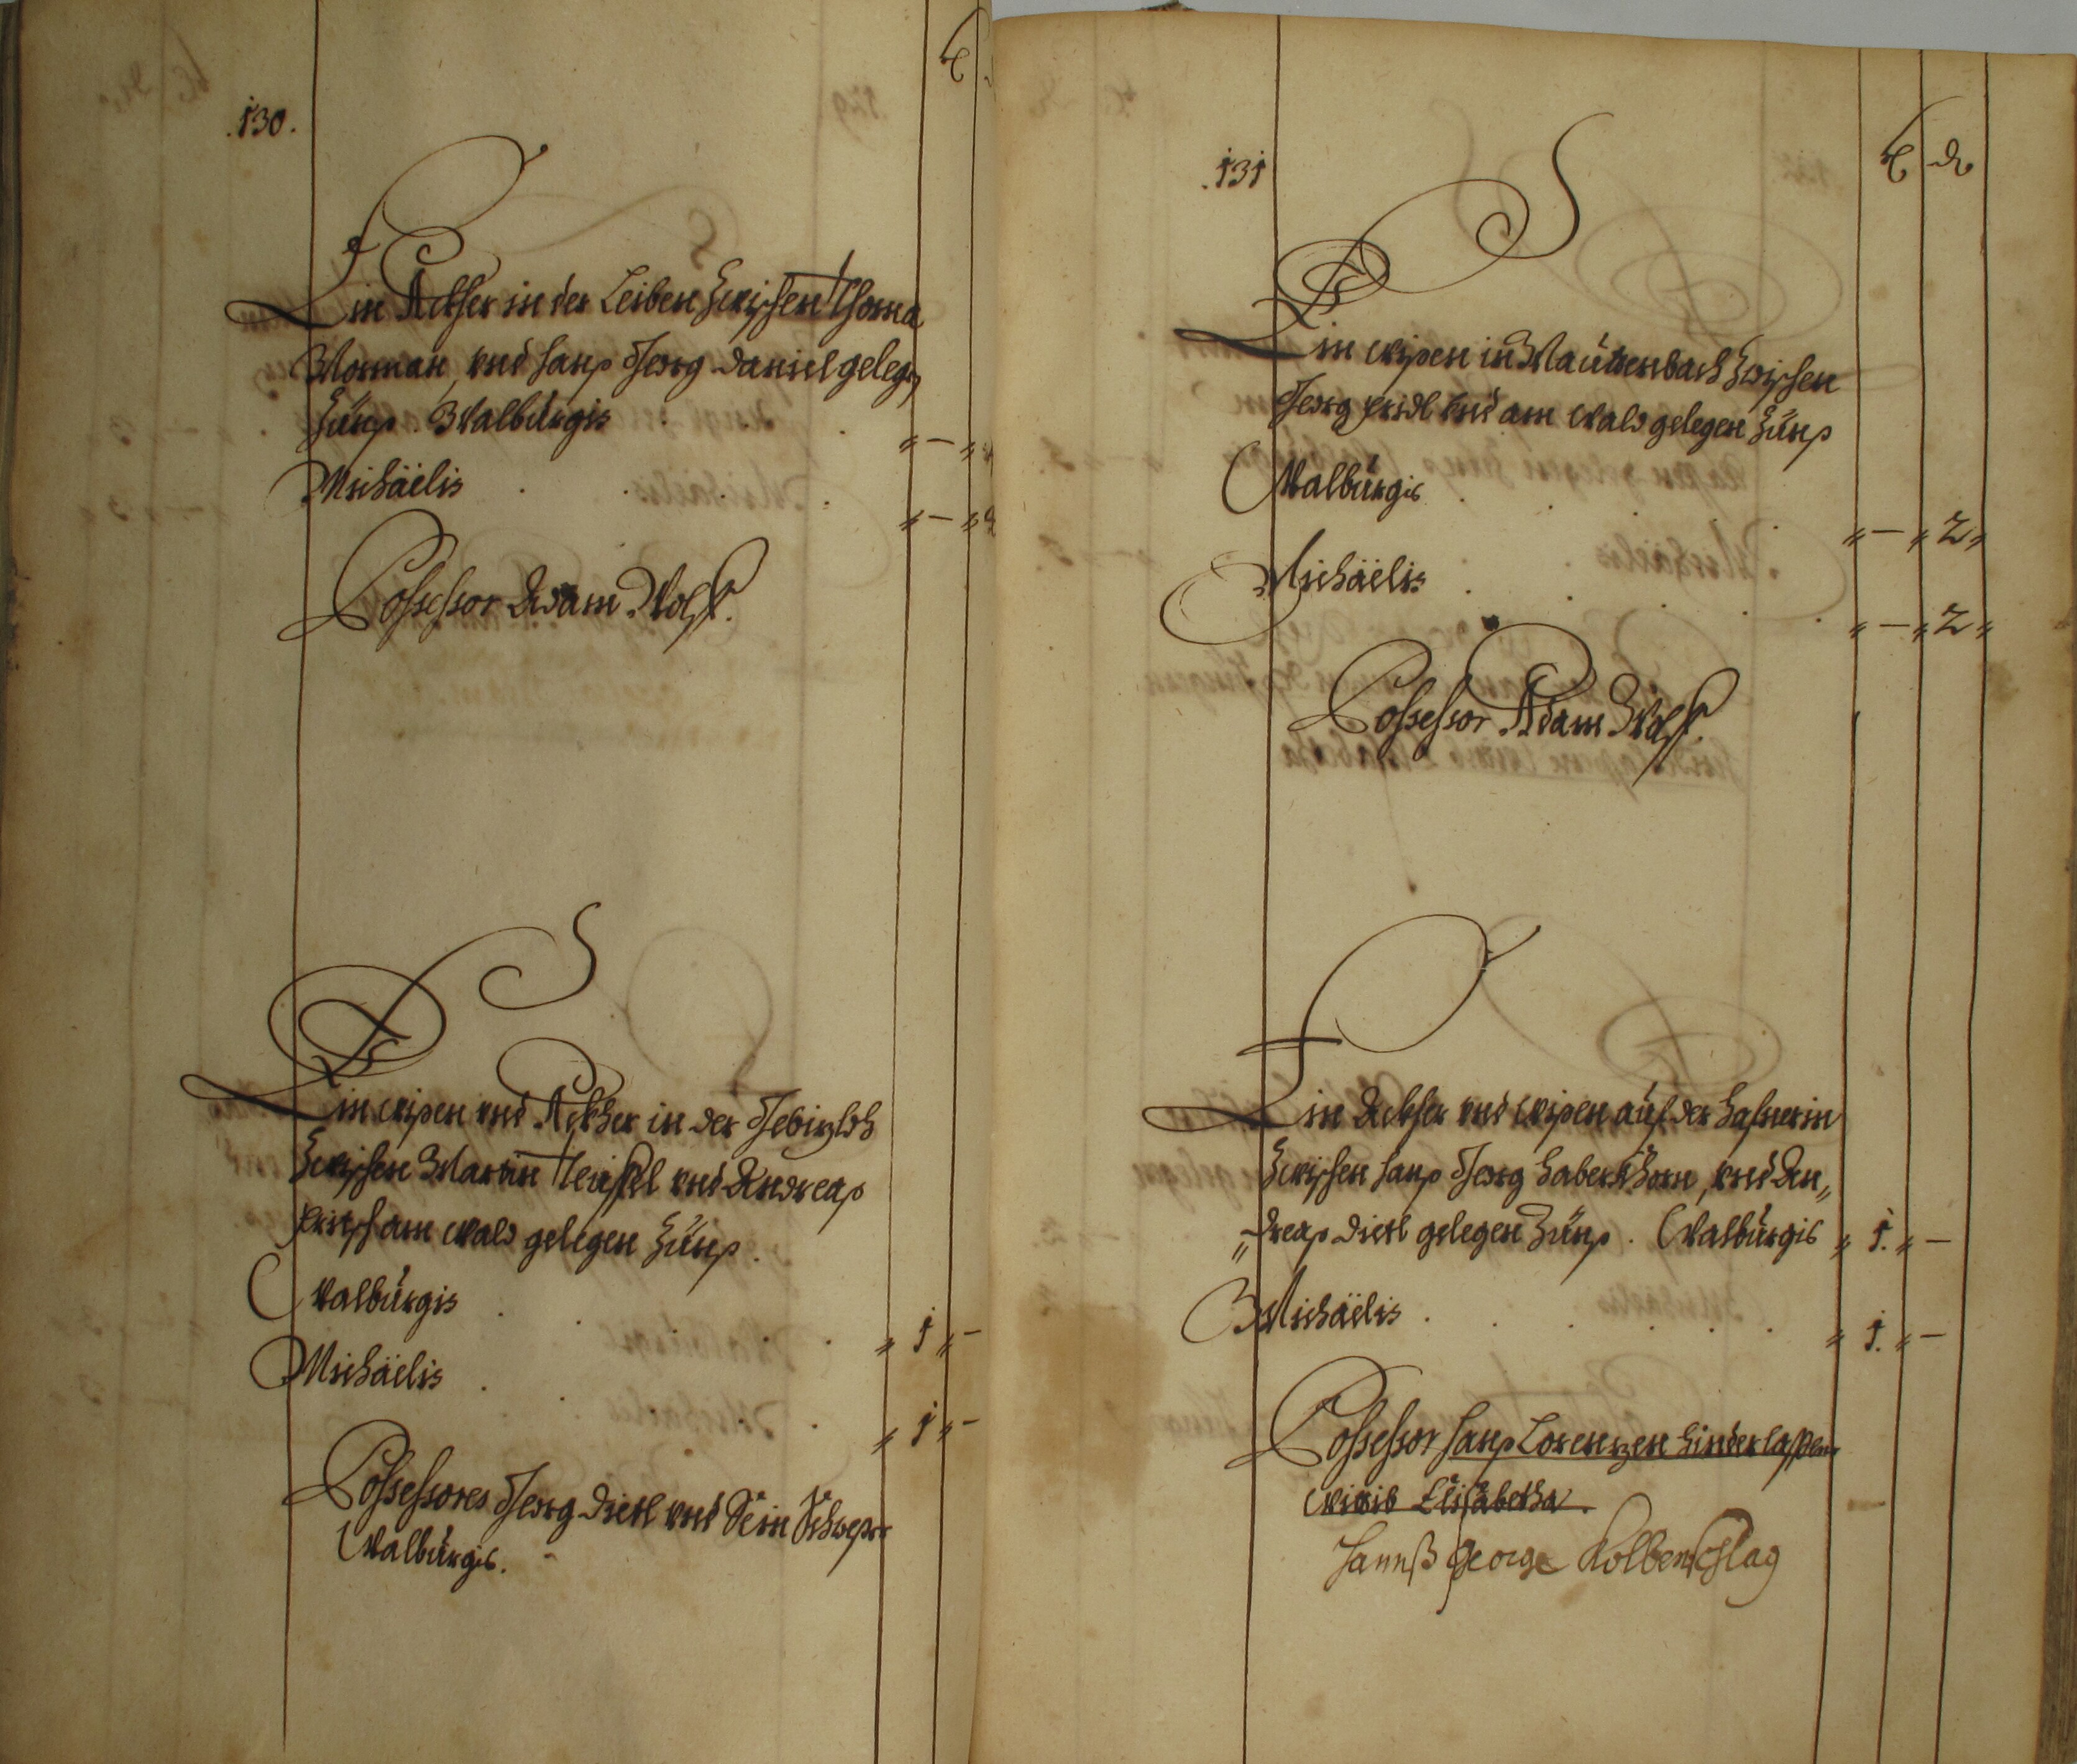 .130.
Ein Ackher in der Leiben zwischen Thoma
Worman, vnd Hanß Georg Daniel gelegen
Zünß. Walburgis . . „ – „
Michäelis . . . „ – „
Possessor Adam Wolf.
Ein wißen vnd Ackher in der
zwischen Martin Teufel vnd Andreaß
am wald gelegen Zünß.
Walburgis . . . „ 1 „ –
Michäelis . . . „ 1 „ –
Possessores Georg Dietl vnd Sein Schwester
Walburgis.
.131
ß ₰
Ein wißen in Mautenbach zwischen
Georg Fridl vnd am wald gelegen Zünß
Walburgis . . . „ – „ 2 „
Michäelis . . . „ – „ 2 „
Possessor Adam Wolf.
Ein Ackher vnd wißen auf der Hafnerin
zwischen Hanß Georg Haberkhorn, vnd An„
„dreaß Dietl gelegen Zünß. Walburgis „ 1. „ –
Michäelis . . . . „ 1. „ –
Possessor Hanß Lorenzen hinderlaßene
Wittib Elisabetha.
Hannß George Kolbenschlag